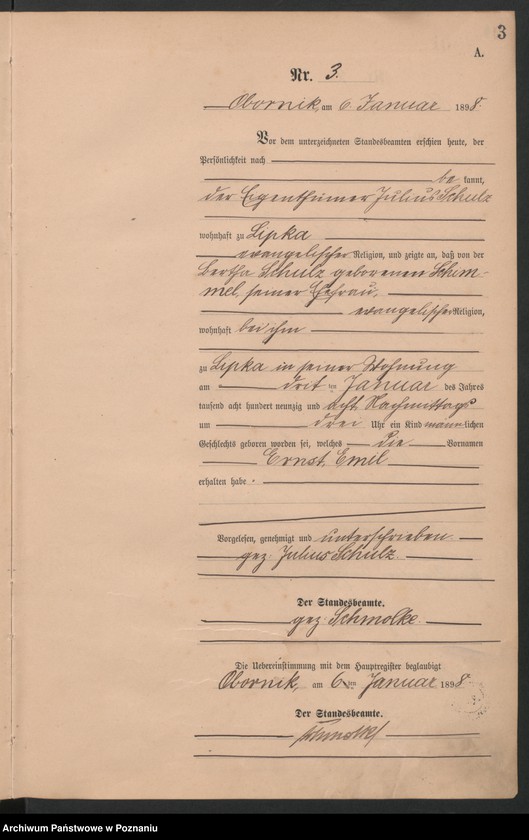 3
A.
Nr. 3.
Obornik, am 6. Januar 1898.
Vor dem unterzeichneten Standesbeamten erschien heute, der
Persönlichkeit nach
be kannt,
der Eigenthümer Julius Schulz
wohnhaft zu Lipka
evangelischer Religion, und zeigte an, daß von der
Bertha Schulz geborenen Schim-
mel, seiner Ehefrau,
evangelischer Religion,
wohnhaft bei ihm
zu Lipka in seiner Wohnung
am drit ten Januar des Jahres
tausend acht hundert neunzig und acht Nachmittags
um drei Uhr ein Kind männ lichen
Geschlechts geboren worden sei, welches die Vornamen
Ernst Emil
erhalten habe.
Vorgelesen, genehmigt und unterschrieben
gez. Julius Schulz.
Der Standesbeamte.
gez. Schmolke.
Die Uebereinstimmung mit dem Hauptregister beglaubigt
Obornik, am 6. ten Januar 1898
Der Standesbeamte.
Schmolke
Archiwum Państwowe w Poznaniu